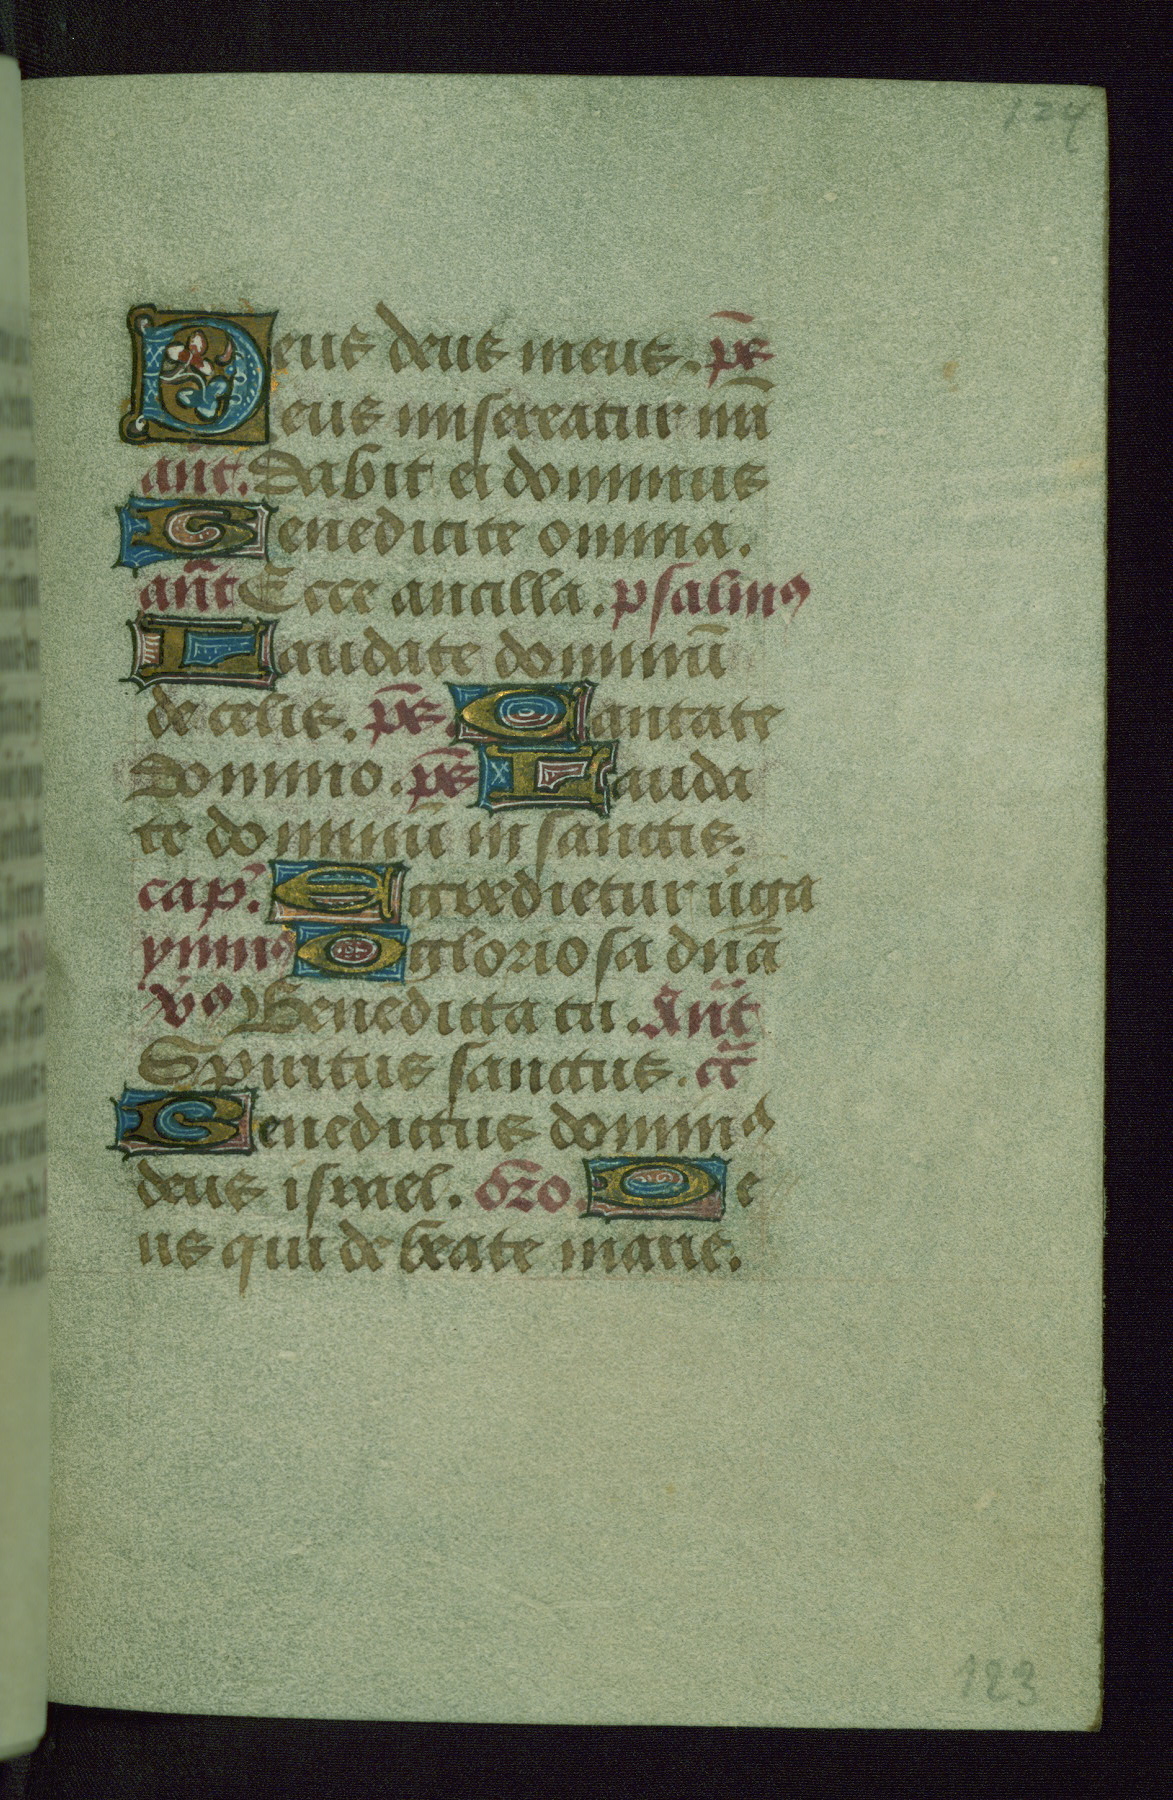 124
Deus deus meus. ps̄
Deus misereatur nr̄i
an̄t. Dabit ei dominus
Benedicite omnia.
an̄t Ecce ancilla. psalmꝰ
Laudate dominū
de celis. ps̄. Cantate
domino. ps̄ Lauda
te dominū in sanctis.
cap. Egredietur uirga
ymnꝰ O gloriosa dn̄a
v̄ꝰ Benedicta tu. An̄t
Spiritus sanctus. c̄a
Benedictus dominꝰ
deus israel. oro De
us qui de beate marie.
123